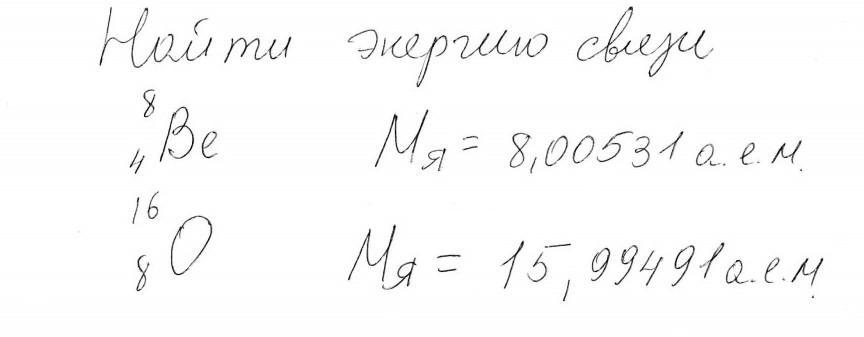 Найти энергию связи
⁸₄Be Mя = 8,00531 а.е.м.
¹⁶₈O Mя = 15,99491 а.е.м.